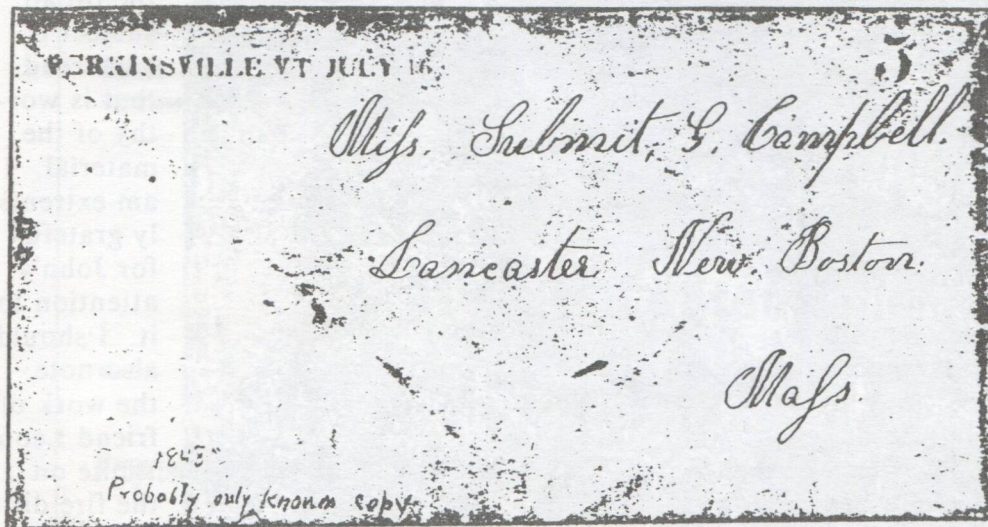 PERKINSVILLE VT JULY 16
5
Miſs Submit, G. Campbell.
Lancaster New. Boston.
Maſs
Probably only known copy